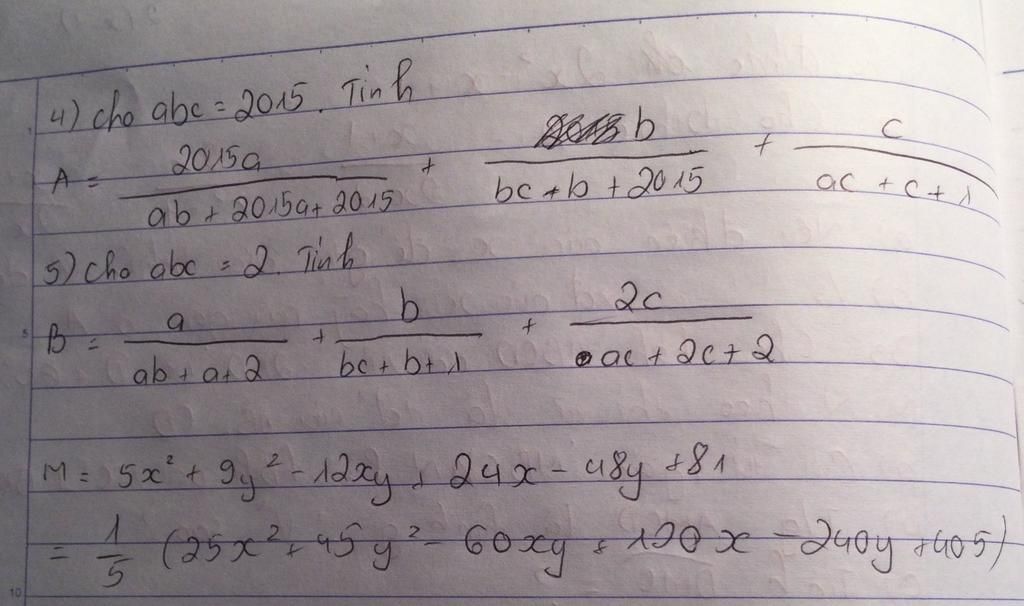 4) Cho abc = 2015. Tính
A = 2015a / (ab + 2015a + 2015) + b / (bc + b + 2015) + c / (ac + c + 1)
5) Cho abc = 2. Tính
B = a / (ab + a + 2) + b / (bc + b + 1) + 2c / (ac + 2c + 2)
M = 5x² + 9y² - 12xy + 24x - 48y + 81
= 1/5 (25x² + 45y² - 60xy + 120x - 240y + 405)